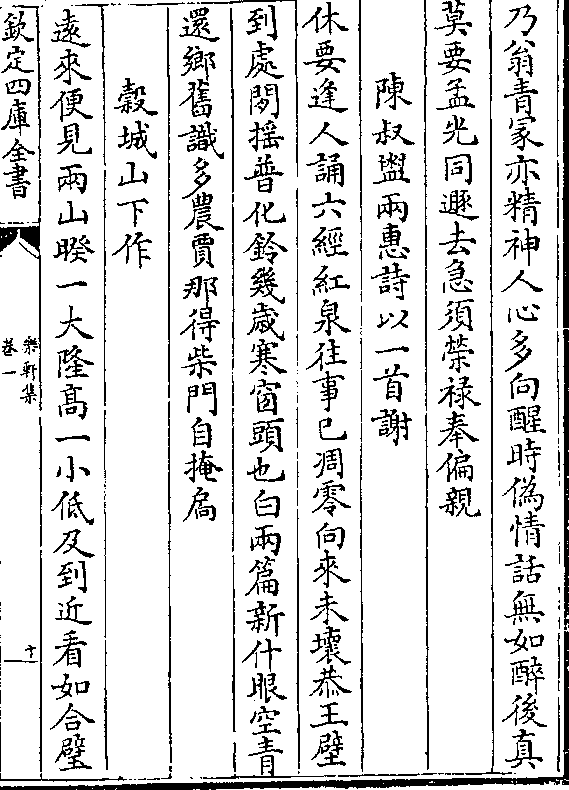 乃翁青冡亦精神人心多向醒時偽情話無如醉後真
莫要孟光同遯去急須榮禄奉偏親
陳叔盥兩惠詩以一首謝
休要逢人誦六經紅泉往事已凋零向來未壞恭王壁
到處閒揺普化鈴幾歳寒窗頭也白兩篇新什眼空青
還鄉舊識多農賈那得柴門自掩扃
穀城山下作
逺來便見兩山暌一大隆髙一小低及到近看如合壁
欽定四庫全書
樂軒集
卷一
十一